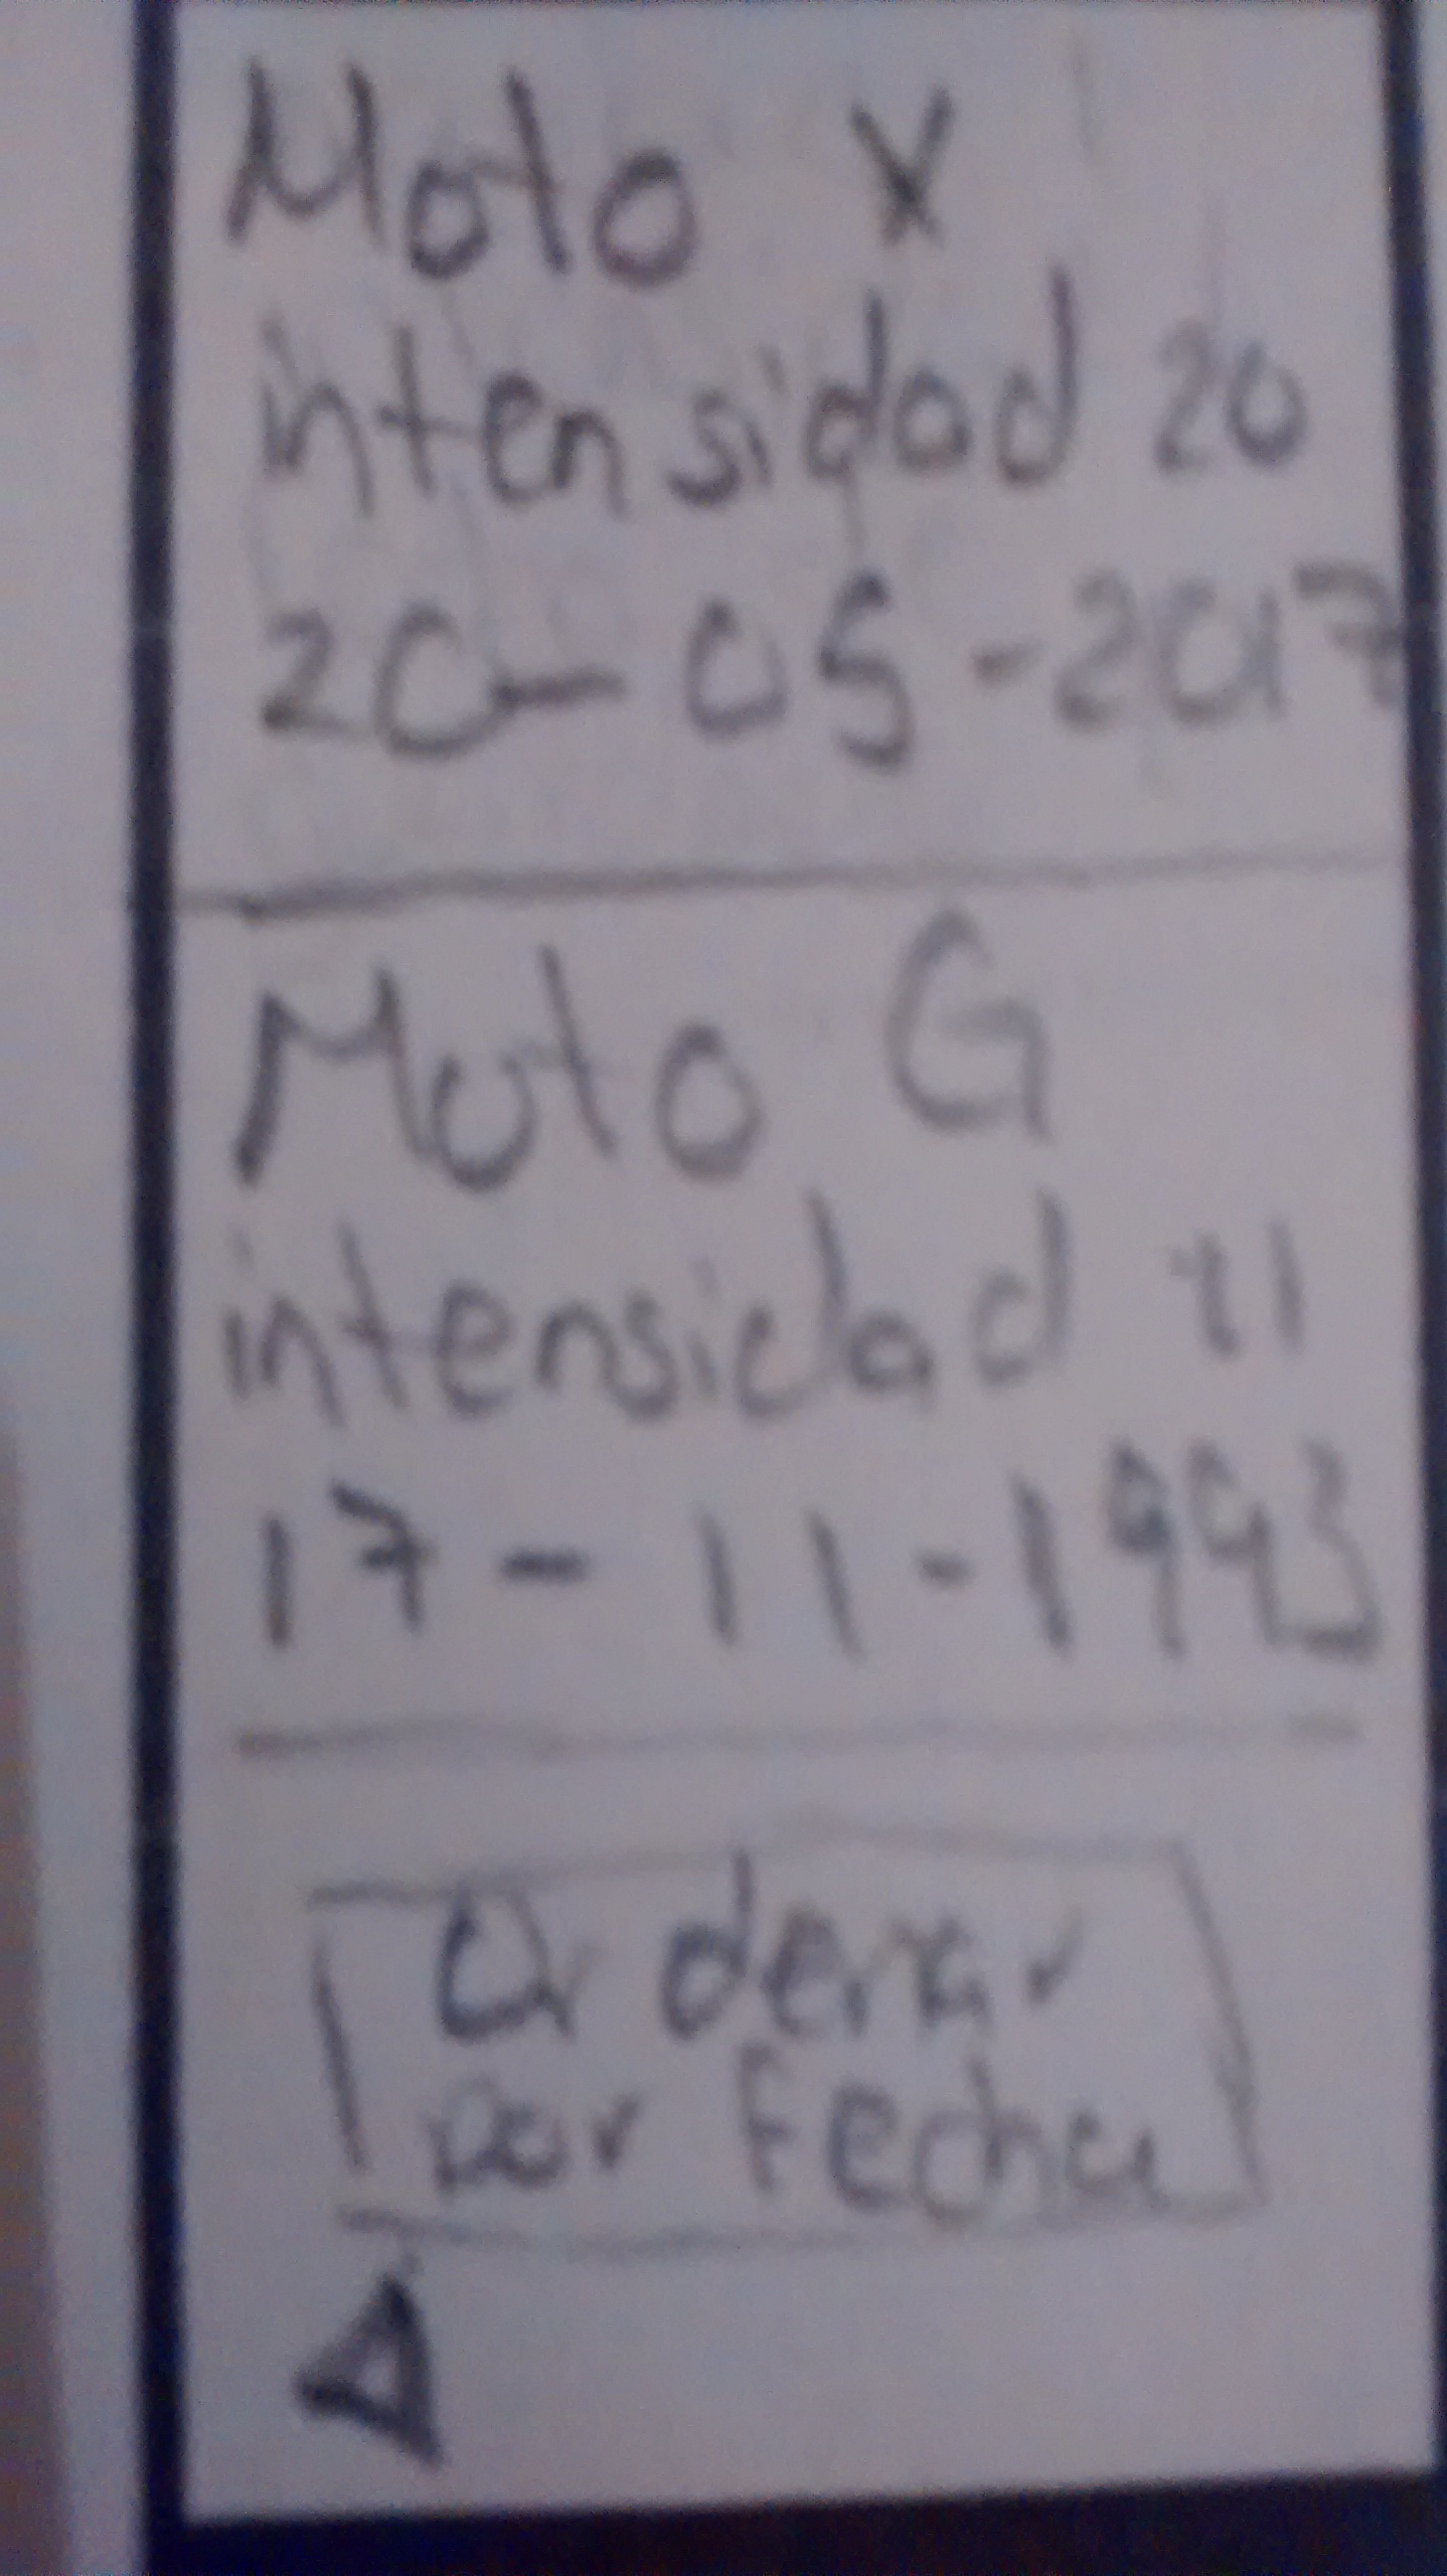 Moto X
intensidad 20
20-05-2017
Moto G
intensidad 11
17-11-1993
Ordenar
por Fecha